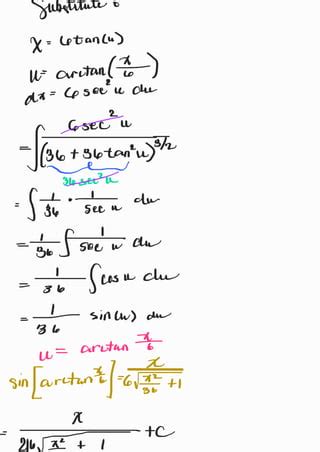 Substitute :
x = 6tan(u)
u = arctan(x/6)
dx = 6 sec² u du
= ∫ 6sec² u / (36 + 36tan² u)^3/2
36 sec² u
= ∫ 1/36 · 1/sec u du
= 1/36 ∫ 1/sec u du
= 1/36 ∫ cos u du
= 1/36 sin(u) du
u = arctan x/6
sin[arctan x/6] = x/6√x²/36 + 1
= x/216√x² + 1 + C